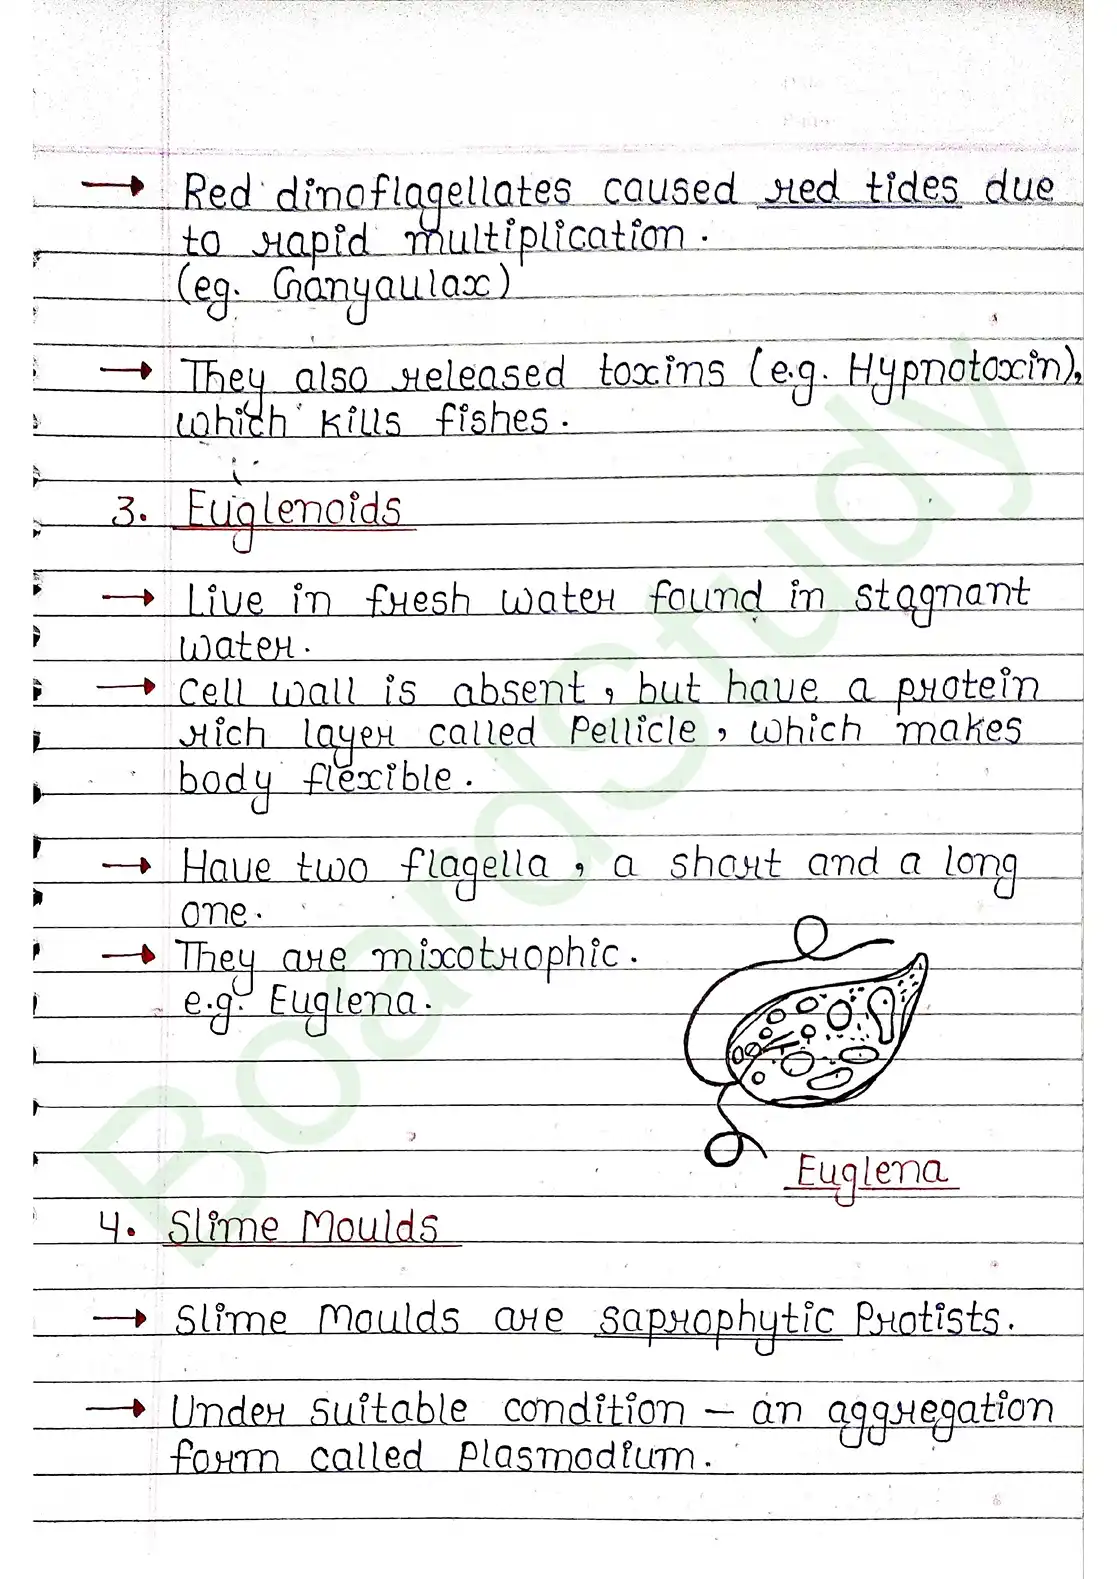 → Red dinoflagellates caused red tides due
to rapid multiplication.
(eg. Gonyaulax)
→ They also released toxins (e.g. Hypnotoxin),
which kills fishes.
3. Euglenoids
→ Live in fresh water found in stagnant
water.
→ Cell wall is absent, but have a protein
rich layer called Pellicle, which makes
body flexible.
→ Have two flagella, a short and a long
one.
→ They are mixotrophic.
e.g. Euglena.
Euglena
4. Slime Moulds
→ Slime Moulds are saprophytic Protists.
→ Under suitable condition – an aggregation
form called Plasmodium.
BoardStudy